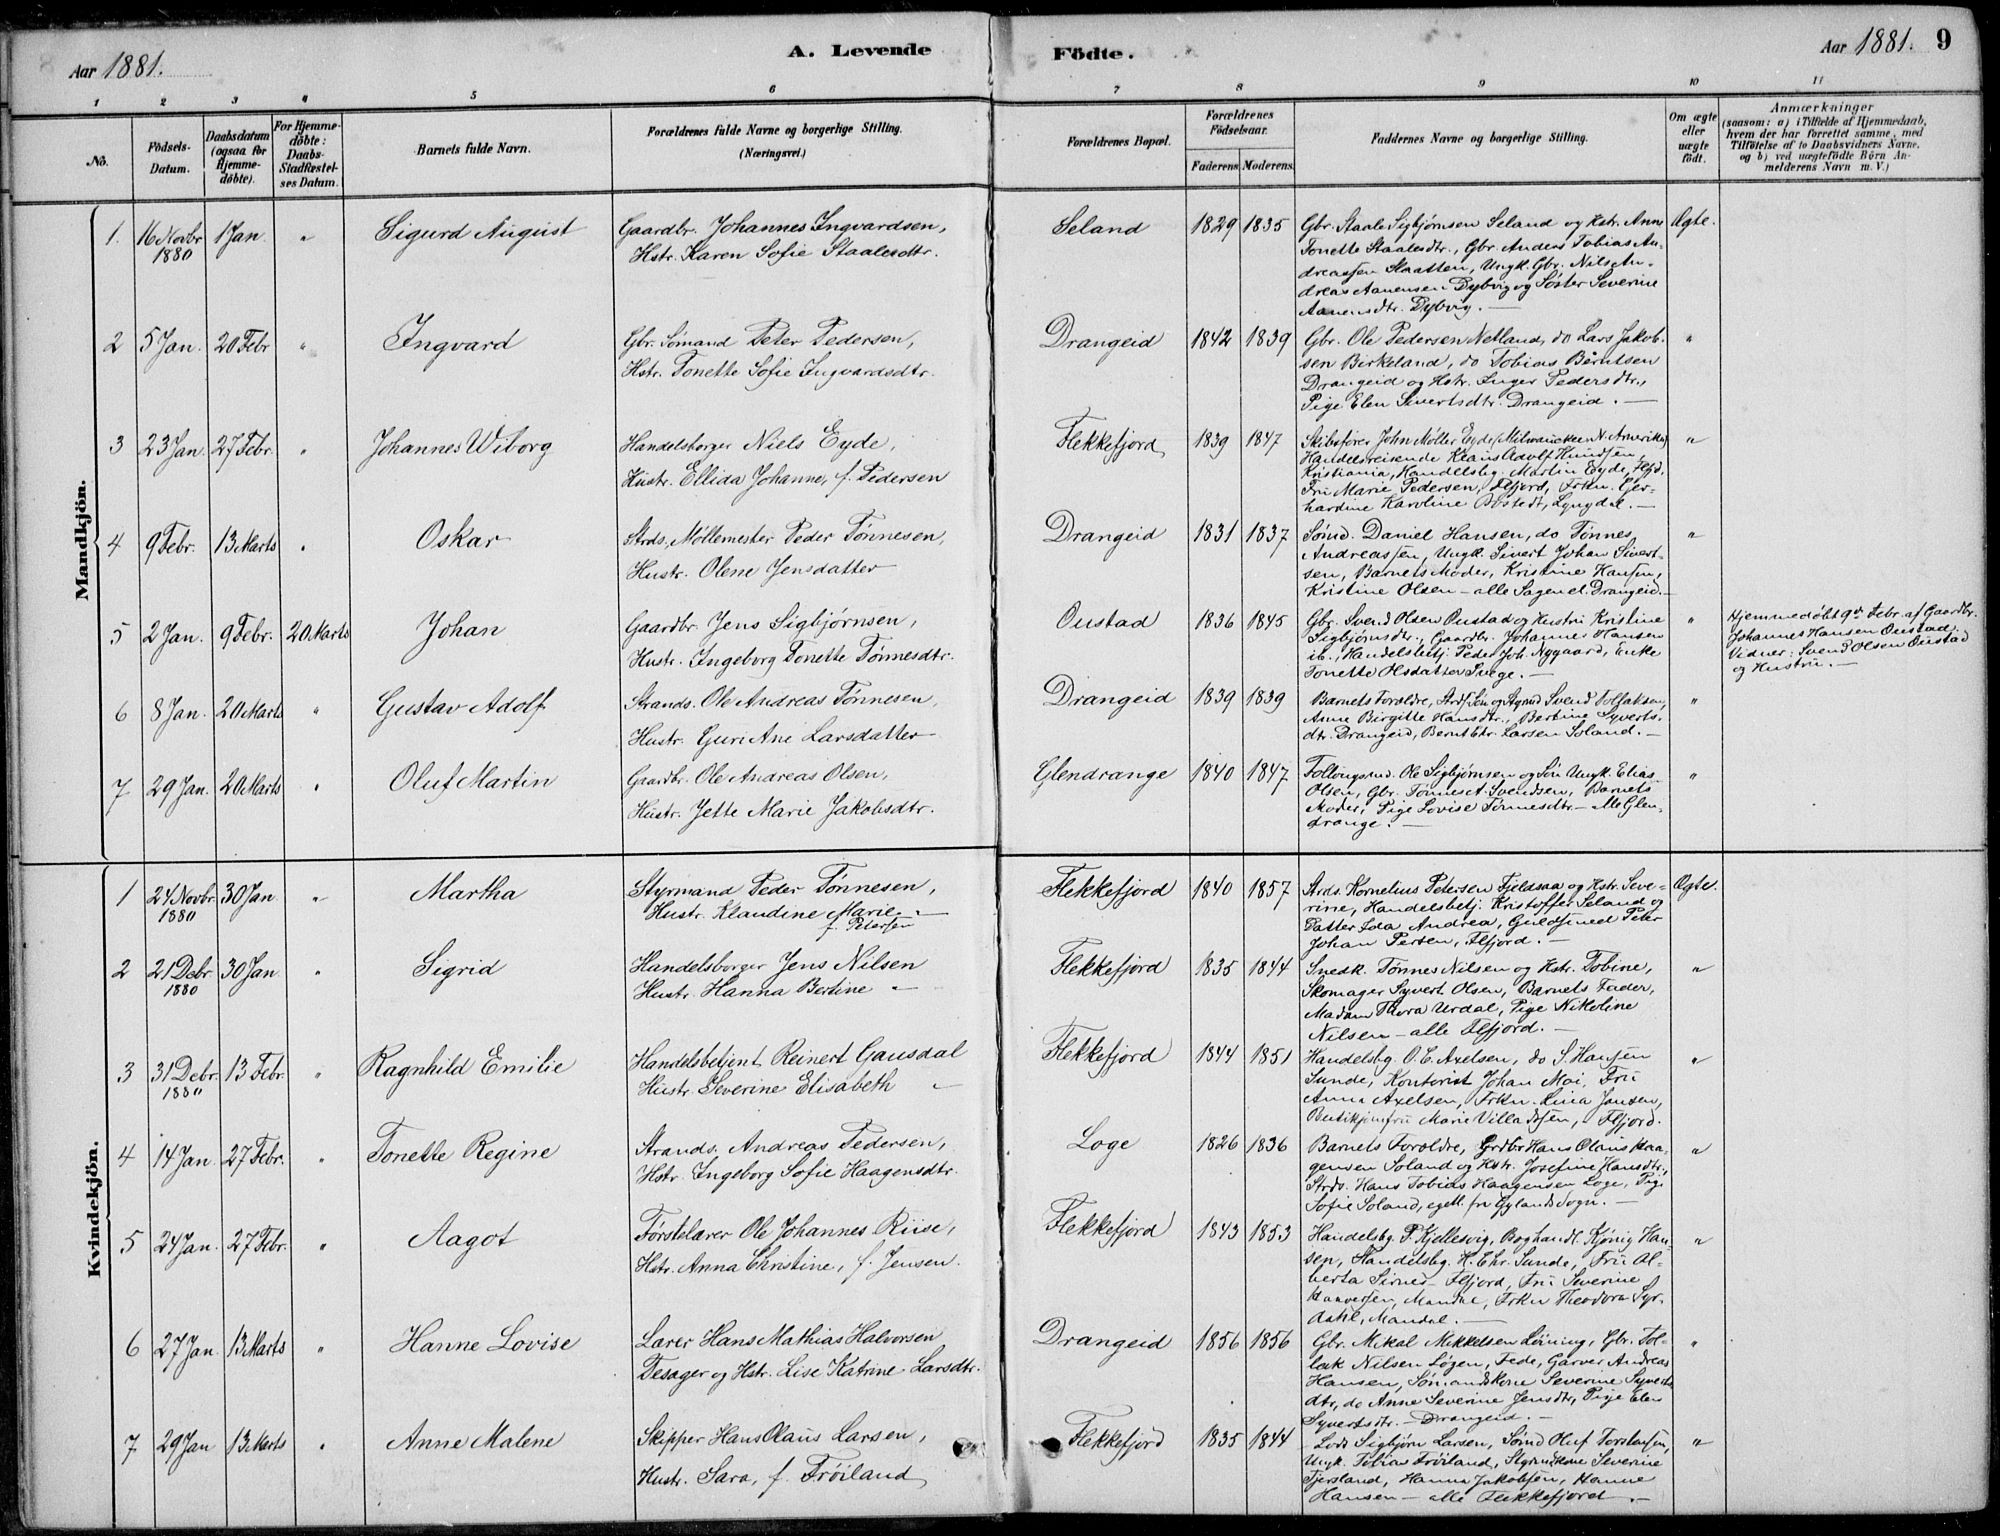 Aar 1881.
A. Levende
Födte.
Aar 1881.
9
1 2 3 4 5 6 7 8 9 10 11
No.
Födsels-
Datum.
Daabsdatum
(ogsaa for
Hjemme-
döbte).
For Hjemme-
döbte:
Daabs-
Stadfæstel-
ses Datum.
Barnets fulde Navn.
Forældrenes fulde Navne og borgerlige Stilling.
(Næringsvei.)
Forældrenes Bopæl.
Forældrenes
Födselsaar.
Faderens. Moderens.
Faddernes Navne og borgerlige Stilling.
Om ægte
eller
uægte
födt.
Anmærkninger
(saasom: a) i Tilfælde af Hjemmedaab,
hvem der har forrettet samme, med
Tilföielse af to Daabsvidners Navne,
og b) ved uægtefödte Börn An-
melderens Navn m.V.)
Mandkjön.
1. 16 Novbr 1880
1 Jan. "
Sigurd August
Gaardbr. Johannes Ingvardsen,
Hstr. Karen Sofie Staalesdtr.
Seland 1829 1835
Gbr. Staale Sigbjørnsen Seland og Hstr. Anne
Tonette Staalesdtr., Gbr. Anders Tobias An-
dreassen Staatten, Ungk. Gbr. Nils An-
dreas Aanensen Dybvig og Søster Severine
Aanensdtr. Dybvig. —
Ægte.
2 5 Jan. 20 Febr "
Ingvard
Gbr. Sømand Peter Pedersen,
Hstr. Tonette Sofie Ingvardsdtr.
Drangeid 1842 1839
Gbr. Ole Pedersen Netland, do Lars Jakob-
sen Birkeland, do Tobias Berntsen
Drangeid og Hstr. Inger Pedersdtr.,
Pige Elen Sivertsdtr. Drangeid. —
"
3 23 Jan. 27 Febr. "
Johannes Wiborg
Handelsborger Niels Eyde,
Hustr. Ellida Johanne, f. Pedersen
Flekkefjord 1839 1847
Skibsfører John Møller Eyde (Milwauckee N. Amerika)
Handelsreisende Klaus Adolf Knudsen,
Kristiania, Handelsbg. Martin Eyde, Flfjd.
Fru Marie Pedersen, Flfjord, Frkn. Ger-
hardine Karoline Abstedt, Lyngdal. —
"
4 9 Febr. 13 Marts "
Oskar
Strds. Møllemester Peder Tønnesen,
Hustr. Olene Jensdatter
Drangeid 1831 1837
Sømd. Daniel Hansen, do Tønnes
Andreassen, Ungk. Sivert Johan Sivert-
sen, Barnets Moder, Kristine Hansen,
Kristine Olsen — alle Sagen el. Drangeid. —
"
5 2 Jan. 9 Febr. 20 Marts
Johan
Gaardbr. Jens Sigbjørnsen,
Hustr. Ingeborg Tonette Tønnesdtr.
Oustad 1836 1845
Gbr. Svend Olsen Oustad og Hustru Kristine
Sigbjørnsdtr., Gaardbr. Johannes Hansen
ib., Handelsbetj. Peder Joh. Nygaard, Enke
Tonette Olsdatter Svege. —
"
Hjemmedøbt 9de Febr. af Gaardbr.
Johannes Hansen Oustad.
Vidner: Svend Olsen Oustad
og Hustru. —
6 8 Jan. 20 Marts "
Gustav Adolf
Strands. Ole Andreas Tønnesen,
Hustr. Guri Ane Larsdatter
Drangeid 1839 1839
Barnets Forældre, Strds. Søn og Svend Tollaksen,
Anne Birgitte Hansdtr., Bertine Syverts-
dtr. Drangeid, Bernt Chr. Larsen Soland. —
"
7 29 Jan. 20 Marts "
Oluf Martin
Gaardbr. Ole Andreas Olsen,
Hustr. Jette Marie Jakobsdtr.
Glendrange 1840 1847
Ole Sigbjørnsen og Søn Ungk. Elias
Olsen, Gbr. Tønnes A. Svendsen, Barnets
Moder, Pige Lovise Tønnesdtr. — Alle Glen-
drange. —
"
Kvindekjön.
1 24 Novbr 1880
30 Jan. "
Martha
Styrmand Peder Tønnesen,
Hustr. Klaudine Marie
f. Petersen
Flekkefjord 1840 1857
Strds. Kornelius Petersen Fjeldsaa og Hstr. Seve-
rine, Handelsbetj. Kristoffer Seland og
Datter Ida Andrea, Guldsmed Peter
Johan Persen, Flfjord. —
Ægte.
2 21 Debr 1880
30 Jan "
Sigrid
Handelsborger Jens Nilsen
Hustr. Hanna Bertine "
Flekkefjord 1835 1844
Snedk. Tønnes Nilsen og Hstr. Tobine,
Skomager Syvert Olsen, Barnets Fader,
Madam Thora Urdal, Pige Nikoline
Nilsen — alle Flfjord. —
"
3 31 Debr. 1880
13 Febr. "
Ragnhild Emilie
Handelsbetjent Reinert Gausdal
Hustr. Severine Elisabeth "
Flekkefjord 1844 1851
Handelsbg. O. E. Axelsen, do S. Hansen
Sunde, Kontorist Johan Moi, Fru
Anna Axelsen, Frkn. Lina Jansen,
Butikjomfru Marie Villadsen, Flfjord.
"
4 14 Jan. 27 Febr. "
Tonette Regine
Strands. Andreas Pedersen,
Hstr. Ingeborg Sofie Haagensdtr.
Loge 1826 1836
Barnets Forældre, Grdbr Hans Olaus Haa-
gensen Soland og Hstr. Josefine Hansdtr.,
Strds. Hans Tobias Haagensen Loge, Pige
Sofie Soland, egtl. fra Gylands Sogn. —
"
5 24 Jan. 27 Febr. "
Aagot
Førstelærer Ole Johannes Riise,
Hstr. Anna Christine, f. Jensen.
Flekkefjord 1843 1853
Handelsbg. P. Kjellesvig, Boghandl. Kjønig Han-
sen, Handelsbg. H. Chr. Sunde, Fru Al-
berta Sirnes — Flfjord, Fru Severine
Haaversen, Mandal, Frkn Theodora Syr-
dahl, Mandal. —
"
6 27 Jan. 13 Marts "
Hanne Lovise
Lærer Hans Mathias Halvorsen
Tesager og Hstr. Lise Katrine Larsdtr.
Drangeid 1856 1856
Gbr. Mikal Mikkelsen Løining, Gbr. Tol-
lak Nilsen Løgen, Fede, Garver Andreas
Hansen, Sømandskone Severine Syverts-
dtr, do Anne Severine Jensdtr, Pige Elen
Syvertsdtr. — Drangeid. —
"
7 29 Jan 13 Marts "
Anne Malene
Skipper Hans Olaus Larsen,
Hustr. Sara, f. Frøiland
Flekkefjord 1835 1844
Lods Sigbjørn Larsen, Sømd Oluf Torstensen,
Ungk. Tobias Frøiland, Styrmdskone Severine
Tjersland, Hanna Jakobsen, Hanne
Hansen — alle Flekkefjord. —
"